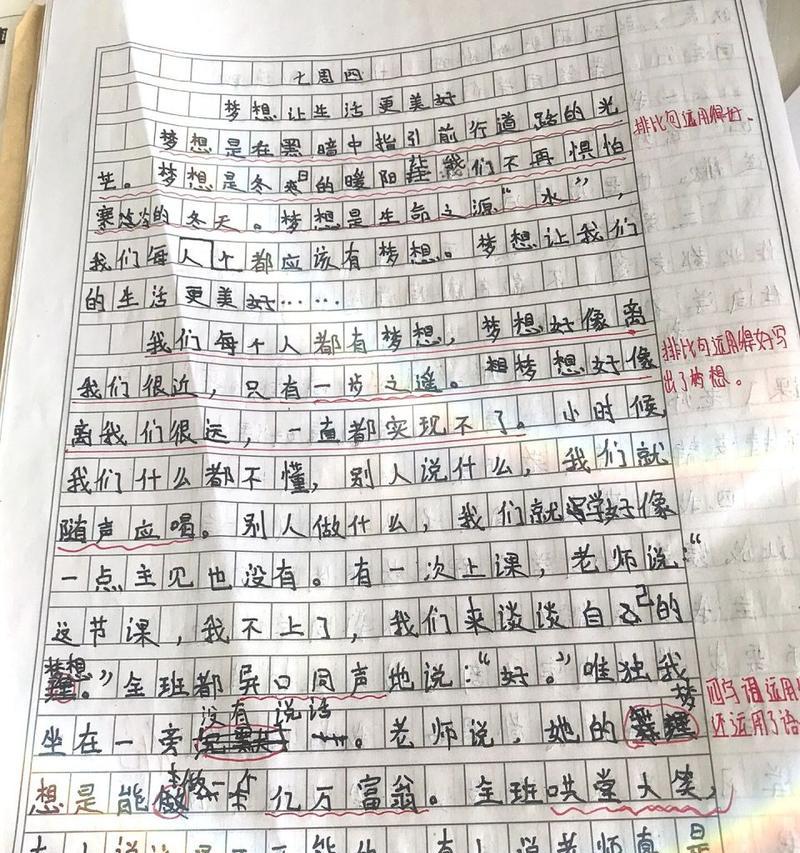 七周四
梦想让生活更美好
梦想是在黑暗中指引前行道路的光
芒。梦想是冬日的暖阳让我们不再惧怕
寒冷的冬天。梦想是生命之源“水”，
我们每人个都应该有梦想。梦想让我们
的生活更美好……
我们每个人都有梦想，梦想好像离
我们很近，只有一步之遥。梦想好像
离我们很远，一直都实现不了。小时候，
我们什么都不懂，别人说什么，我们就
随声应喝。别人做什么，我们就学好像
一点主见也没有。有一次上课，老师说：“
这节课，我不上了，我们来谈谈自己的
梦想。”全班都异口同声地说：“好。”唯独我
坐在一旁没有说话。老师说，她的梦
想是能做一个亿万富翁。全班哄堂大笑，
排比句运用得好。
排比句运用得好写
出了梦想。
四字词语运用
还运用了语